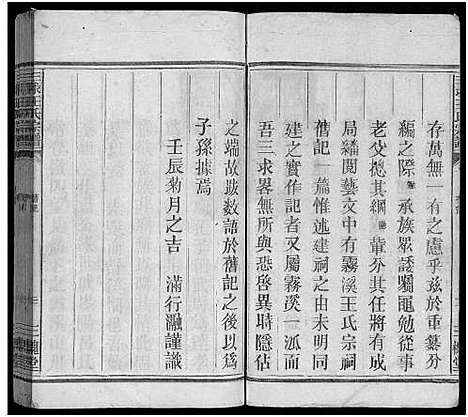 存萬無一有之慮乎玆於重纂分
編之際 承族眾諉囑黽勉從事
老父揽其綱 輩分其任將有成
局繙閱藝文中有霧溪王氏宗祠
舊記一篇惟述建祠之由未明同
建之實作記者又屬霧溪一派與
吾三求畧無與恐啓異時隱佔
之端故跋數語於舊記之後以爲
子孫據焉
壬辰菊月之吉 滿行瀜謹識